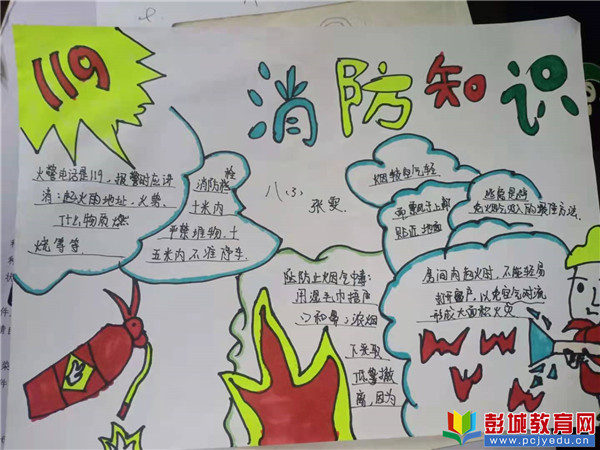 119
消防知识
火警电话是119，报警时应讲
清：起火的地址、火势、
什么物质燃
烧等等
栓
消防栓
十米内
严禁堆物、十
五米内不准停车
八、(3)
张雯
烟较空气轻
贴近地面
防止烟气中毒：
用湿毛巾捂住
口和鼻；浓烟
下采取
低靠撤
离，因为
房间内起火时，不能轻易
打开窗户，以免空气对流
形成大面积火灾
彭城教育网
www.pcjyedu.cn